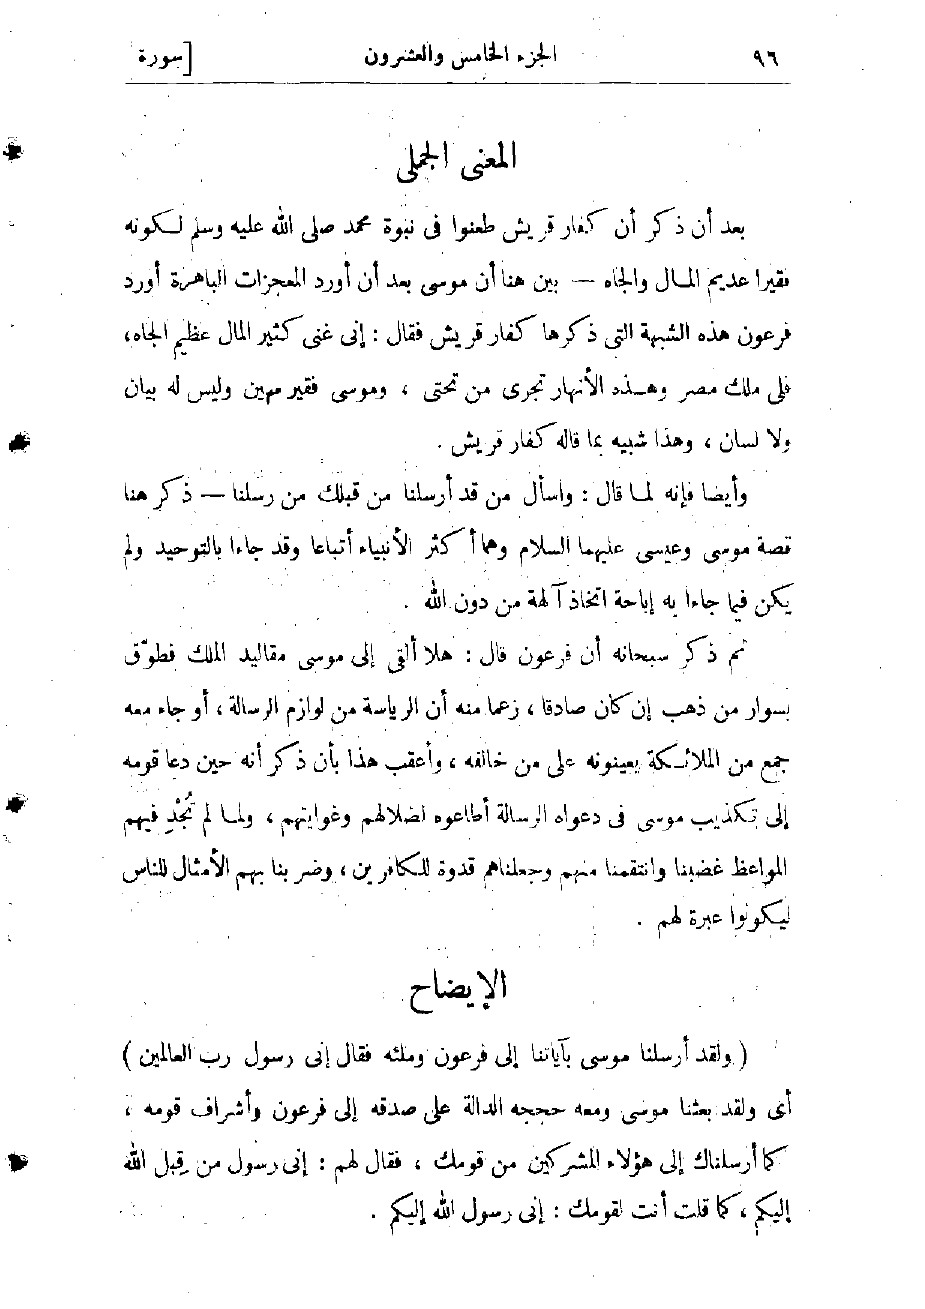 ٩٦ الجزء الخامس والعشرون [سورة
المعنى الجملى
بعد أن ذكر أن كفار قريش طعنوا فى نبوة محمد صلى الله عليه وسلم لكونه
فقيرا عديم المال والجاه — بين هنا أن موسى بعد أن أورد المعجزات الباهرة أورد
فرعون هذه الشبهة التى ذكرها كفار قريش فقال : إنى غنى كثير المال عظيم الجاه،
فلى ملك مصر وهذه الأنهار تجرى من تحتى ، وموسى فقير مهين وليس له بيان
ولا لسان ، وهذا شبيه بما قاله كفار قريش .
وأيضا فإنه لما قال : واسأل من قد أرسلنا من قبلك من رسلنا — ذكر هنا
قصة موسى وعيسى عليهما السلام وهما أكثر الأنبياء أتباعا وقد جاءا بالتوحيد ولم
يكن فيما جاءا به إباحة اتخاذ آلهة من دون الله .
ثم ذكر سبحانه أن فرعون قال : هلا ألقى إلى موسى مقاليد الملك فطوّق
بسوار من ذهب إن كان صادقا ، زعما منه أن الرياسة من لوازم الرسالة ، أو جاء معه
جمع من الملائكة يعينونه على من خالفه ، وأعقب هذا بأن ذكر أنه حين دعا قومه
إلى تكذيب موسى فى دعواه الرسالة أطاعوه لضلالهم وغوايتهم ، ولما لم تُجْدِ فيهم
المواعظ غضبنا وانتقمنا منهم وجعلناهم قدوة للكافرين ، وضربنا بهم الأمثال للناس
ليكونوا عبرة لهم .
الإيضاح
( ولقد أرسلنا موسى بآياتنا إلى فرعون وملئه فقال إنى رسول رب العالمين )
أى ولقد بعثنا موسى ومعه حججه الدالة على صدقه إلى فرعون وأشراف قومه ،
كما أرسلناك إلى هؤلاء المشركين من قومك ، فقال لهم : إنى رسول من قِبل الله
إليكم ، كما قلت أنت لقومك : إنى رسول الله إليكم .